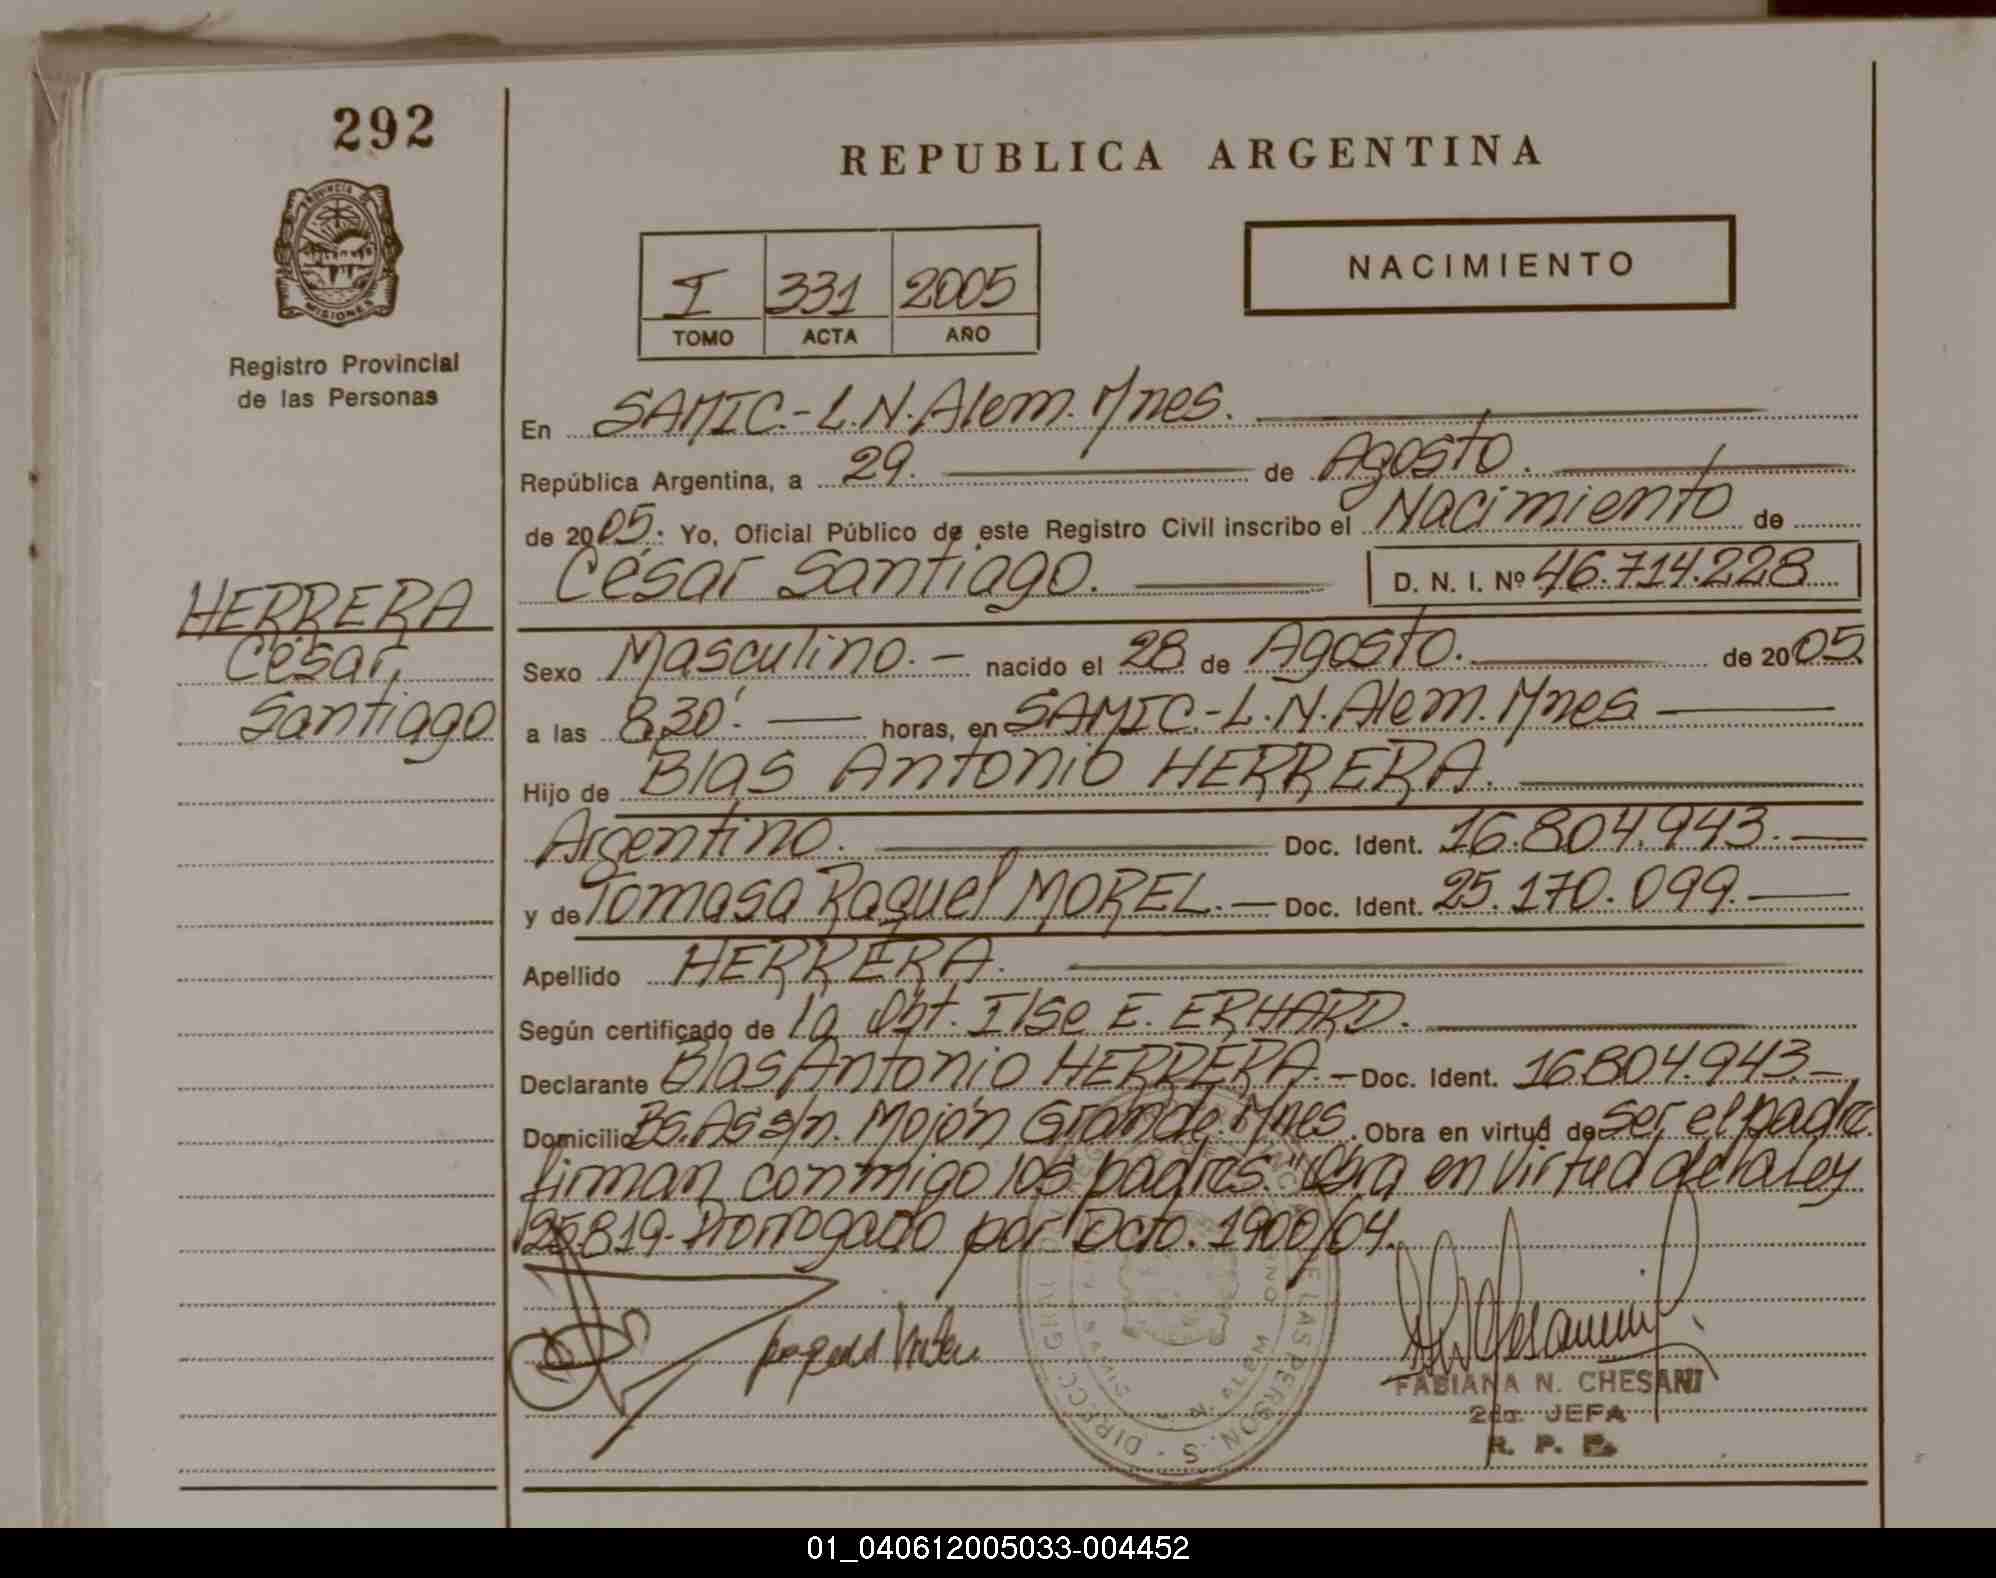 292
PROVINCIA DE
MISIONES
Registro Provincial
de las Personas
HERRERA
César,
Santiago
REPUBLICA ARGENTINA
I 331 2005
TOMO ACTA AÑO
NACIMIENTO
En SAMIC.-L.N.Alem. Mnes.
República Argentina, a 29. de Agosto.
de 2005. Yo, Oficial Público de este Registro Civil inscribo el Nacimiento de
César Santiago. D. N. I. Nº 46.714.228
Sexo Masculino.- nacido el 28 de Agosto. de 2005
a las 8,30'. horas, en SAMIC.-L.N.Alem. Mnes
Hijo de Blas Antonio HERRERA.
Argentino. Doc. Ident. 16.804.943.-
y de Tomasa Raquel MOREL.- Doc. Ident. 25.170.099.-
Apellido HERRERA.
Según certificado de la Obt. Ilse E. ERHARD.
Declarante Blas Antonio HERRERA.- Doc. Ident. 16.804.943.-
Domicilio Bs.As s/n. Mojón Grande. Mnes. Obra en virtud de ser el padre.
firman conmigo los padres. "Obra en virtud de la Ley
25.819- Prorrogado por Dcto. 1900/04.
FABIANA N. CHESANI
2da. JEFA
R. P. P.
01_040612005033-004452